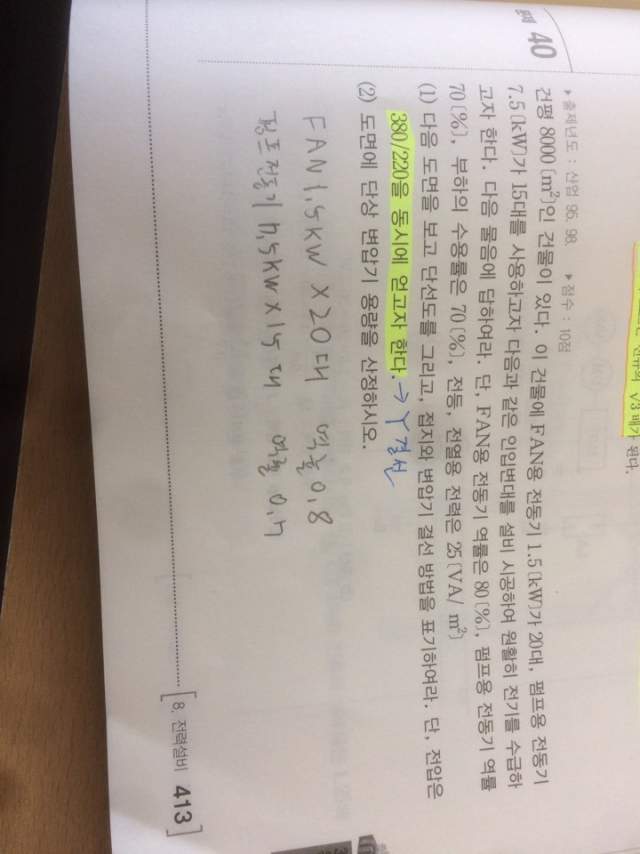 문제 40
▶출제년도 : 산업 95. 98. ▶점수 : 10점
건평 8000[m²]인 건물이 있다. 이 건물에 FAN용 전동기 1.5[kW]가 20대, 펌프용 전동기
7.5[kW]가 15대를 사용하고자 다음과 같은 인입변대를 설비 시공하여 원활히 전기를 수급하
고자 한다. 다음 물음에 답하여라. 단, FAN용 전동기 역률은 80[%], 펌프용 전동기 역률
70[%], 부하의 수용률은 70[%], 전등, 전열용 전력은 25[VA/m²]
(1) 다음 도면을 보고 단선도를 그리고, 접지와 변압기 결선 방법을 표기하여라. 단, 전압은
380/220을 동시에 얻고자 한다. → Y결선
(2) 도면에 단상 변압기 용량을 산정하시오.
FAN 1.5kW × 20대 역률 0.8
펌프전동기 7.5kW × 15대 역률 0.7
[8. 전력설비 413]
√3배가 된다.